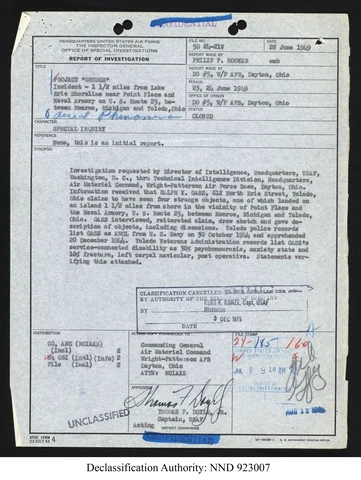 CONFIDENTIAL
HEADQUARTERS UNITED STATES AIR FORCE
THE INSPECTOR GENERAL
OFFICE OF SPECIAL INVESTIGATIONS
REPORT OF INVESTIGATION
FILE NO.
5D 24-217
DATE
28 June 1949
REPORT MADE BY
PHILIP F. HOOKER
REPORT MADE AT
DO #5, W/P AFB, Dayton, Ohio
PERIOD
23, 24 June 1949
OFFICE OF ORIGIN
DO #5, W/P AFB, Dayton, Ohio
STATUS
CLOSED
TITLE
PROJECT "GRUDGE"
Incident - 1 1/2 miles from Lake
Erie Shoreline near Point Place and
Naval Armory on U. S. Route 25, be-
tween Monroe, Michigan and Toledo, Ohio
Aerial Phenomena
CHARACTER
SPECIAL INQUIRY
REFERENCE
None, this is an initial report.
SYNOPSIS
Investigation requested by Director of Intelligence, Headquarters, USAF,
Washington, D. C., thru Technical Intelligence Division, Headquarters,
Air Materiel Command, Wright-Patterson Air Force Base, Dayton, Ohio.
Information received that RALPH E. 
Ohio claims to have seen four strange objects, one of which landed on
an island 1 1/2 miles from shore in the vicinity of Point Place and
the Naval Armory, U. S. Route 25, between Monroe, Michigan and Toledo,
Ohio. interviewed, reiterated claim, drew sketch and gave de-
scription of objects, including dimensions. Toledo police records
list as AWOL from U. S. Navy on 30 October 1944 and apprehended
20 December 1944. Toledo Veterans Administration records list
service-connected disability as 50% psychoneurosis, anxiety state and
10% fracture, left carpal navicular, post operative. Statements ver-
ifying this attached.
CLASSIFICATION CANCELLED
BY AUTHORITY OF THE
BY
Capt, USAF
Historian
DATE
3 DEC 1975
DISTRIBUTION
CG, AMC (MCIAXS)
(Incl) 2
HQ OSI (Incl) (Info) 2
File (Incl) 2
ACTION COPY FORWARDED TO
Commanding General
Air Materiel Command
Wright-Patterson AFB
Dayton, Ohio
ATTN: MCIAXS
FILE STAMP
24-185-
APPROVED
THOMAS F. DOYLE, JR.
Captain, USAF
Acting DISTRICT COMMANDER
UNCLASSIFIED
CONFIDENTIAL
Declassification Authority: NND 923007